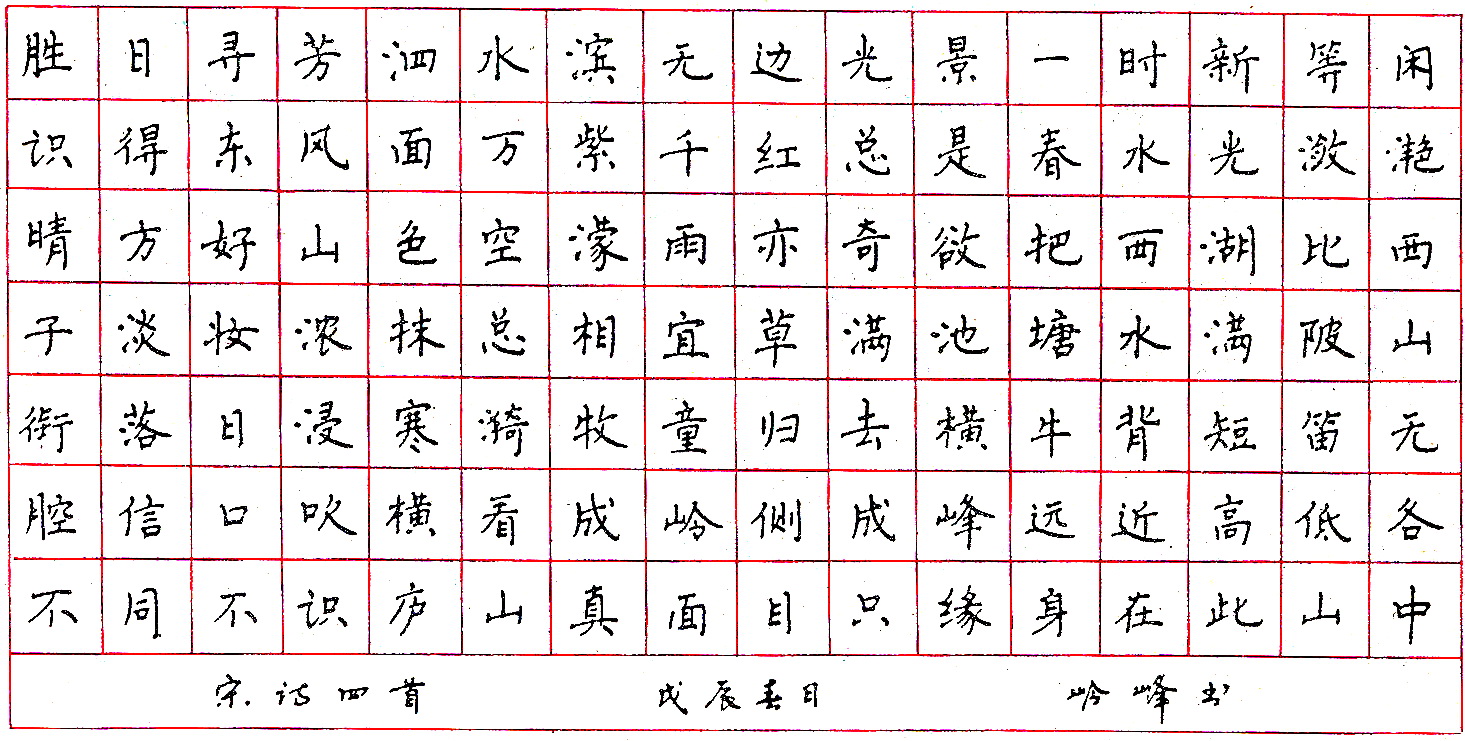 胜日寻芳泗水滨无边光景一时新等闲
识得东风面万紫千红总是春水光潋滟
晴方好山色空濛雨亦奇欲把西湖比西
子淡妆浓抹总相宜草满池塘水满陂山
衔落日浸寒漪牧童归去横牛背短笛无
腔信口吹横看成岭侧成峰远近高低各
不同不识庐山真面目只缘身在此山中
宋诗四首 戊辰春日 岭峰书